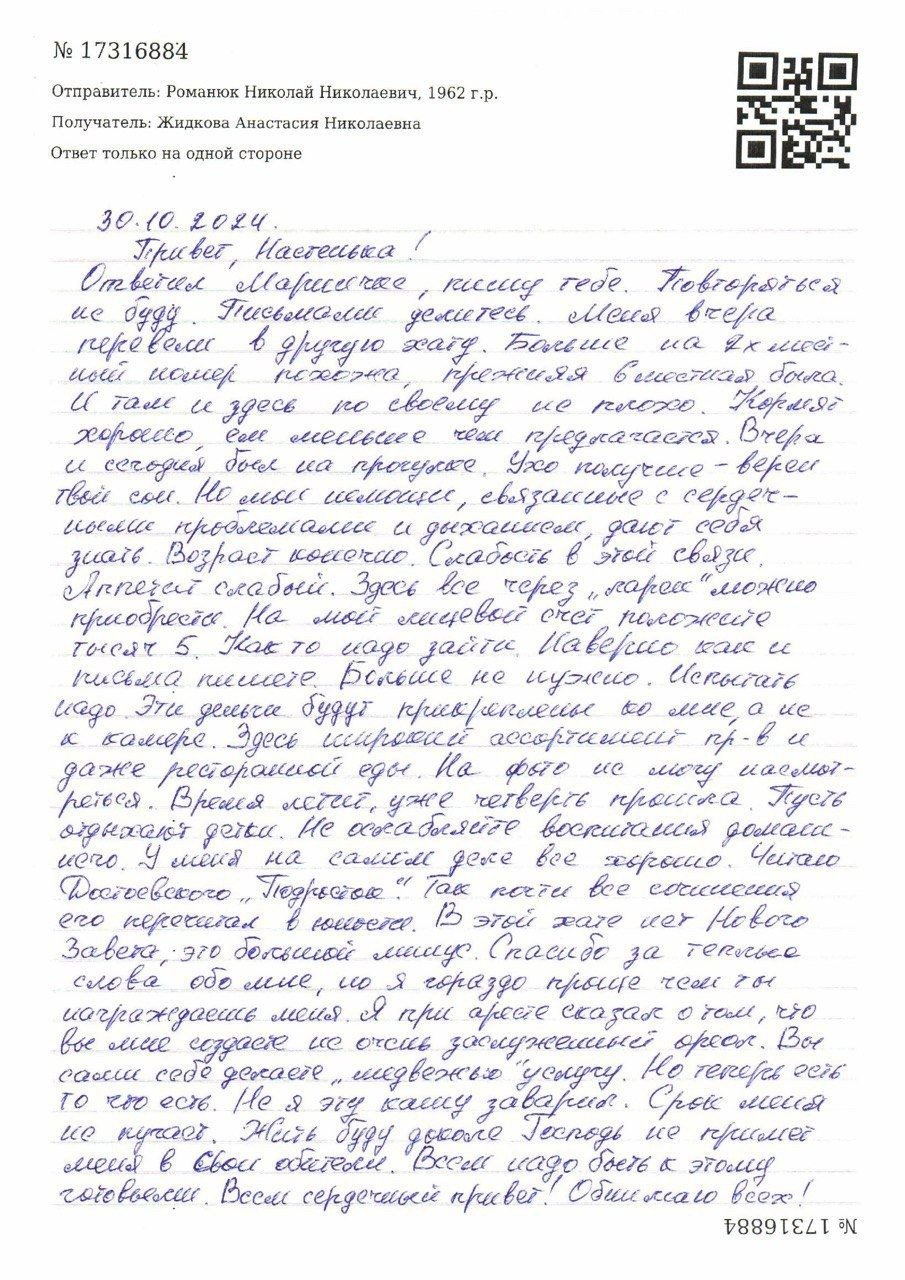 № 17316884
Отправитель: Романюк Николай Николаевич, 1962 г.р.
Получатель: Жидкова Анастасия Николаевна
Ответ только на одной стороне
30.10.2024.
Привет, Настенька!
Ответил Мариичке, пишу тебе. Повторяться
не буду. Письмами делитесь. Меня вчера
перевели в другую хату. Больше на 2х мест-
ный номер похожа, прежняя 6 местная была.
И там и здесь по своему не плохо. Кормят
хорошо, ем меньше чем предлагается. Вчера
и сегодня был на прогулке. Ухо получше - верен
твой сон. Но мои немощи, связанные с сердеч-
ными проблемами и дыханием, дают себя
знать. Возраст конечно. Слабость в этой связи.
Аппетит слабый. Здесь все через „ларек" можно
приобрести. На мой лицевой счёт положите
тысяч 5. Как то надо зайти. Наверно как и
письма пишете. Больше не нужно. Испытать
надо. Эти деньги будут прикреплены ко мне, а не
к камере. Здесь широкий ассортимент пр-в и
даже ресторанной еды. На фото не могу насмот-
реться. Время летит, уже четверть прошла. Пусть
отдыхают детки. Не ослабляйте воспитания домаш-
него. У меня на самом деле все хорошо. Читаю
Достоевского „Подросток". Так почти все сочинения
его перечитал в юности. В этой хате нет Нового
Завета, это большой минус. Спасибо за теплые
слова обо мне, но я гораздо проще чем ты
награждаешь меня. Я при аресте сказал о том, что
вы мне создаете не очень заслуженный ореол. Вы
сами себе делаете „медвежью" услугу. Но теперь есть
то что есть. Не я эту кашу заварил. Срок меня
не пугает. Жить буду доколе Господь не примет
меня в свои обители. Всем надо быть к этому
готовыми. Всем сердечный привет! Обнимаю всех!
№ 17316884